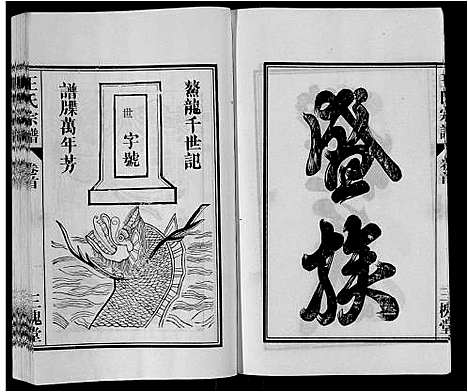 盛族
三槐堂
鰲龍千世記
世
字號
譜牒萬年芳
王氏宗譜
卷首
三槐堂